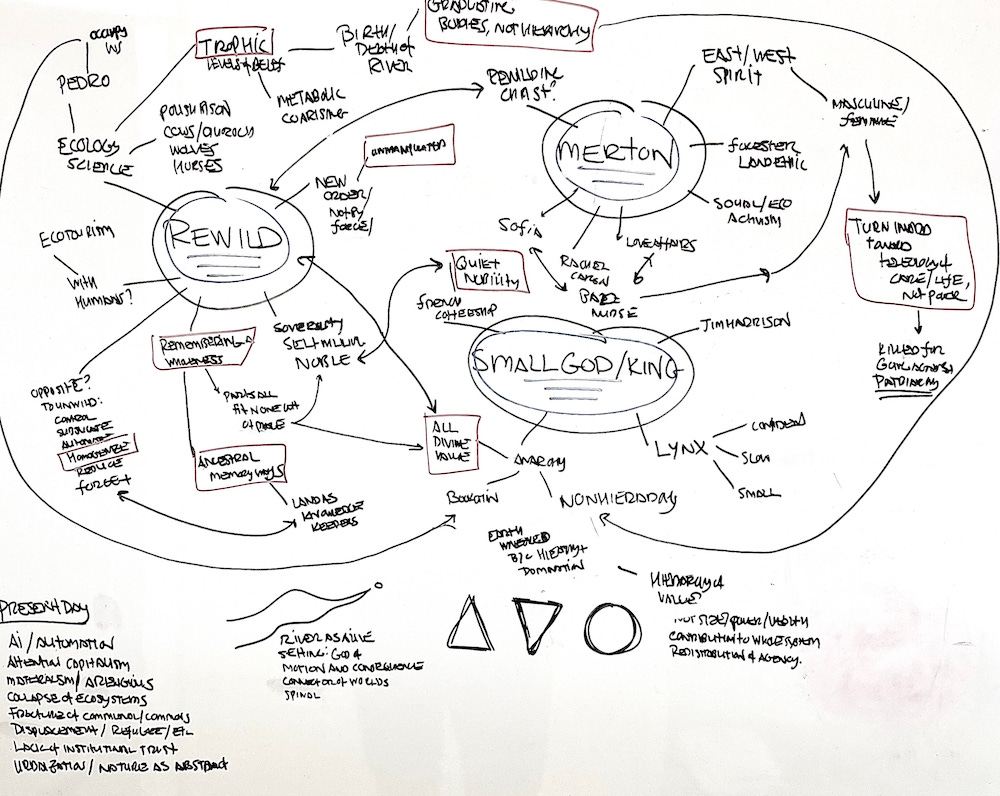 GRADUATING
BODIES, NOT HIERARCHY
OCCUPY
WS
PEDRO
ECOLOGY
SCIENCE
TROPHIC
LEVELS OF BELIEF
BIRTH/
DEATH OF
RIVER
METABOLIC
COARISING
POLISH BISON
COWS/AUROCHS
WOLVES
HORSES
REWILDING
CHRIST?
EAST/WEST
SPIRIT
MASCULINE/
FEMININE
MERTON
FORESTER
LAND ETHIC
SOCIAL/ECO
ACTIVISM
NEW
ORDER/
NOT BY
FORCE/
REWILD
ECOTOURISM
WITH
HUMANS?
SOFIA
RACHEL
CARSON
LOVE AFFAIRS
NURSE
QUIET
NOBILITY
FRENCH
COFFEESHOP
TURN INWARD
TOWARD
CARE/LIFE,
NOT POWER
KILLED FOR
PATRIARCHY
REMEMBERING
WHOLENESS
NOBLE
SMALL GOD/KING
JIM HARRISON
OPPOSITE?
TO UNWILD:
CONTROL
SUBJUGATE
AUTOMATE
HOMOGENIZE
REDUCE
FORGET
PARTS ALL
ANCESTRAL
MEMORY WAYS
LAND AS
KNOWLEDGE
KEEPERS
ALL
DIVINE
VALUE
ANARCHY
BOOKCHIN
NONHIERARCHY
LYNX
CONFIDENT
SLOW
SMALL
EARTH
WRECKED
B/C HIERARCHY +
DOMINATION
HIERARCHY OF
VALUE?
NOT SIZE/POWER/WEALTH
CONTRIBUTION TO WHOLE SYSTEM
REDISTRIBUTION OF AGENCY.
PRESENT DAY
AI / AUTOMATION
ATTENTION CAPITALISM
MATERIALISM / ARELIGIOUS
COLLAPSE OF ECOSYSTEMS
FRACTURE OF COMMUNAL/COMMONS
DISPLACEMENT / REFUGEE/ETC
LACK OF INSTITUTIONAL TRUST
URBANIZATION / NATURE AS ABSTRACT
RIVER AS ALIVE
SETTING: GOD OF
MOTION AND CONSEQUENCE
CONNECTOR OF WORLDS
SPINAL